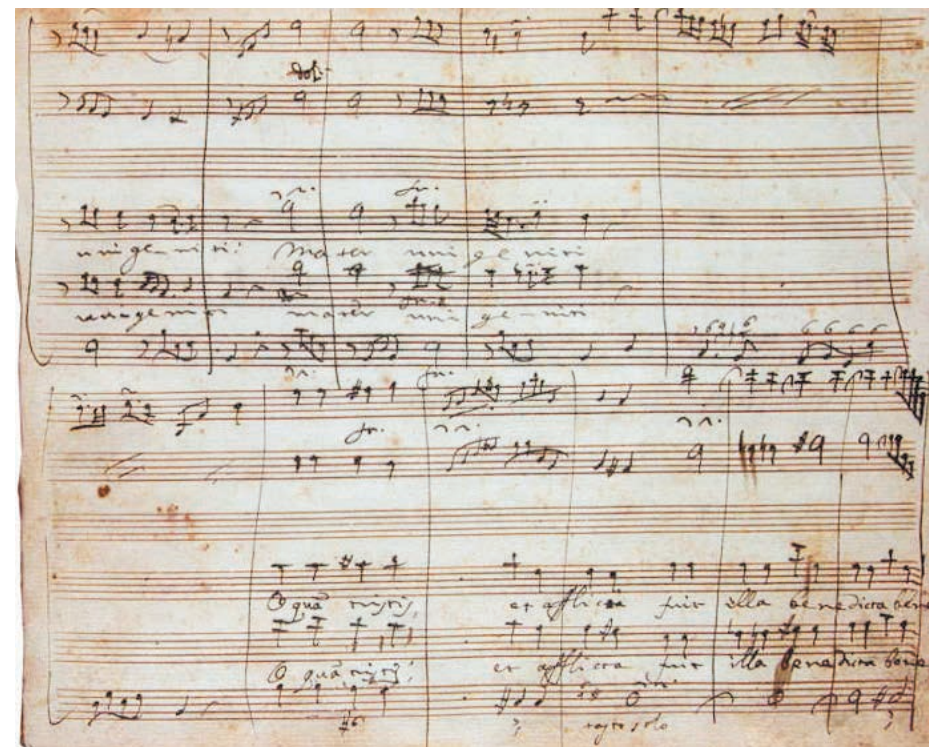 dol:
unigeniti: Mater unigeniti
unigeniti mater unigeniti
6 6 6 6
O quã tristis, et afflicta fuit illa benedicta bene
O quã tristis, et afflicta fuit illa benedicta bene
#6 tasto solo